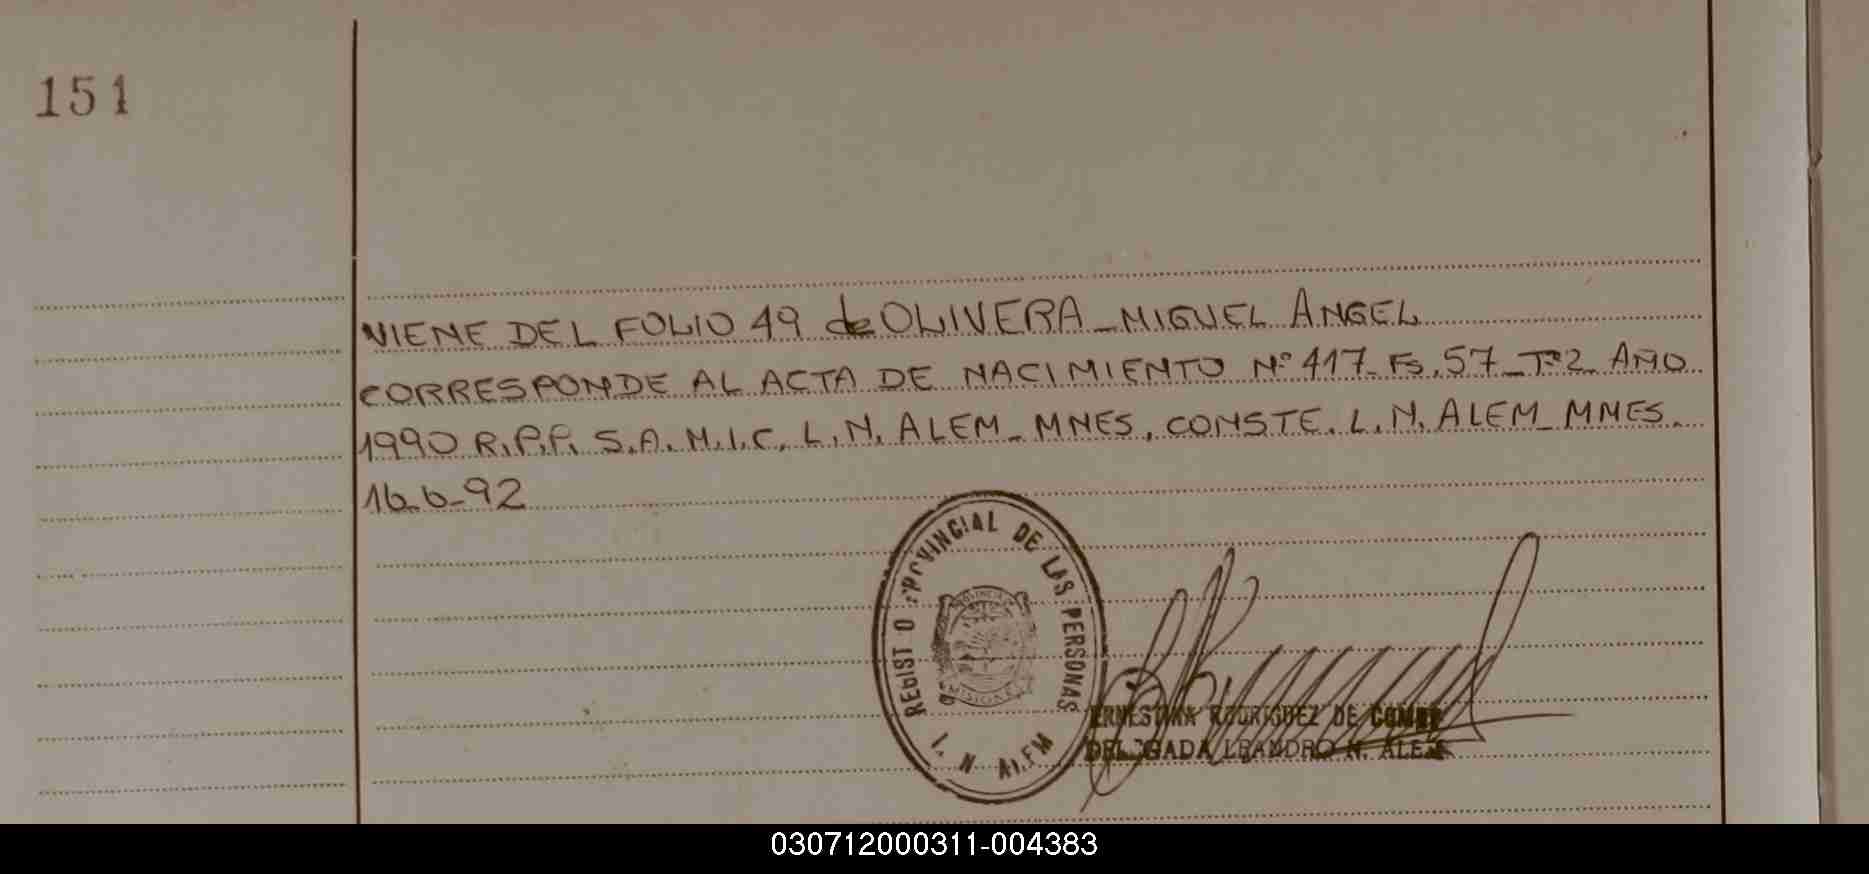 151
VIENE DEL FOLIO 49 de OLIVERA_MIGUEL ANGEL
CORRESPONDE AL ACTA DE NACIMIENTO Nº 417_Fs.57_Tº2. AÑO
1990 R.P.P. S.A.M.I.C. L.N. ALEM_MNES, CONSTE. L.N. ALEM_MNES.
16_6_92
REGIST O PROVINCIAL DE LAS PERSONAS
PROVINCIA
MISIONES
L. N ALEM
ERNESTINA RODRIGUEZ DE
DELEGADA LEANDRO N. ALEM
030712000311-004383